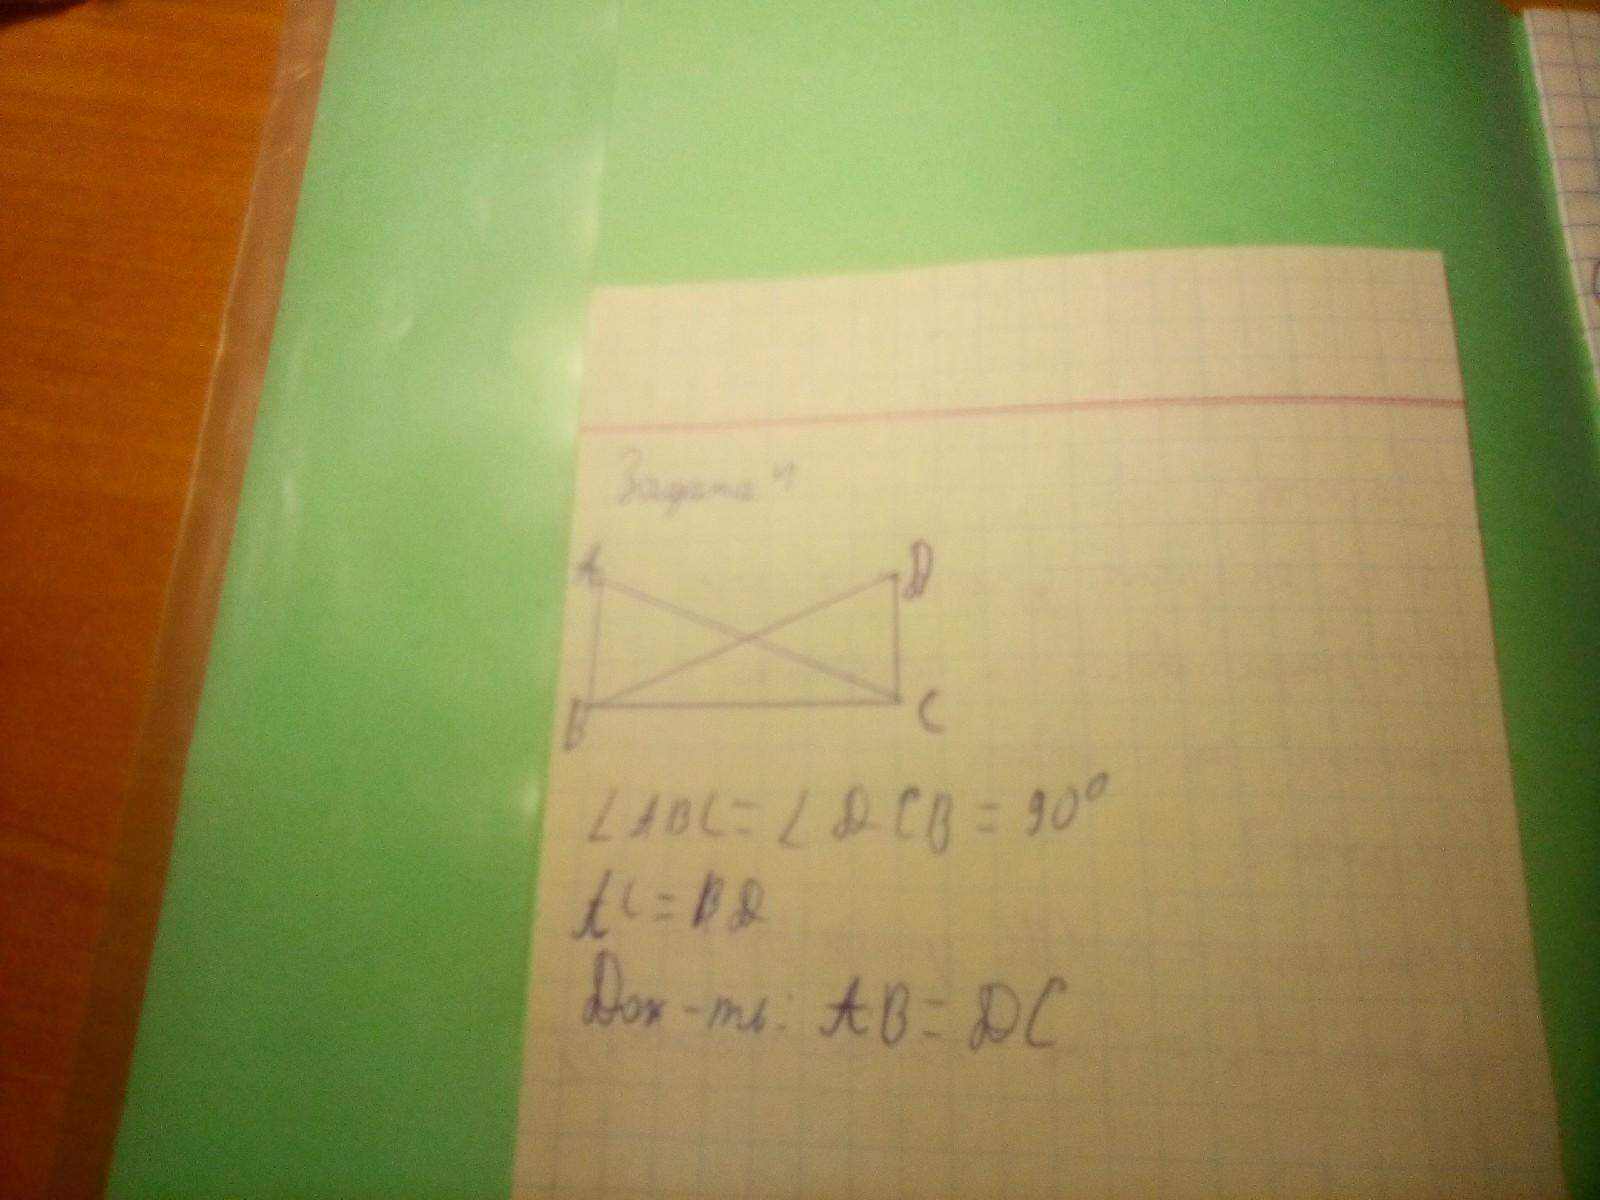 Задача 4
A D
B C
∠ABC = ∠DCB = 90°
AC = BD
Док-ть: AB = DC